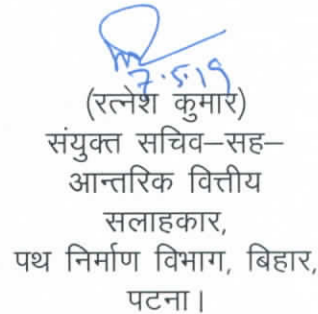 7.5.19
(रत्नेश कुमार)
संयुक्त सचिव–सह–
आन्तरिक वित्तीय
सलाहकार,
पथ निर्माण विभाग, बिहार,
पटना।